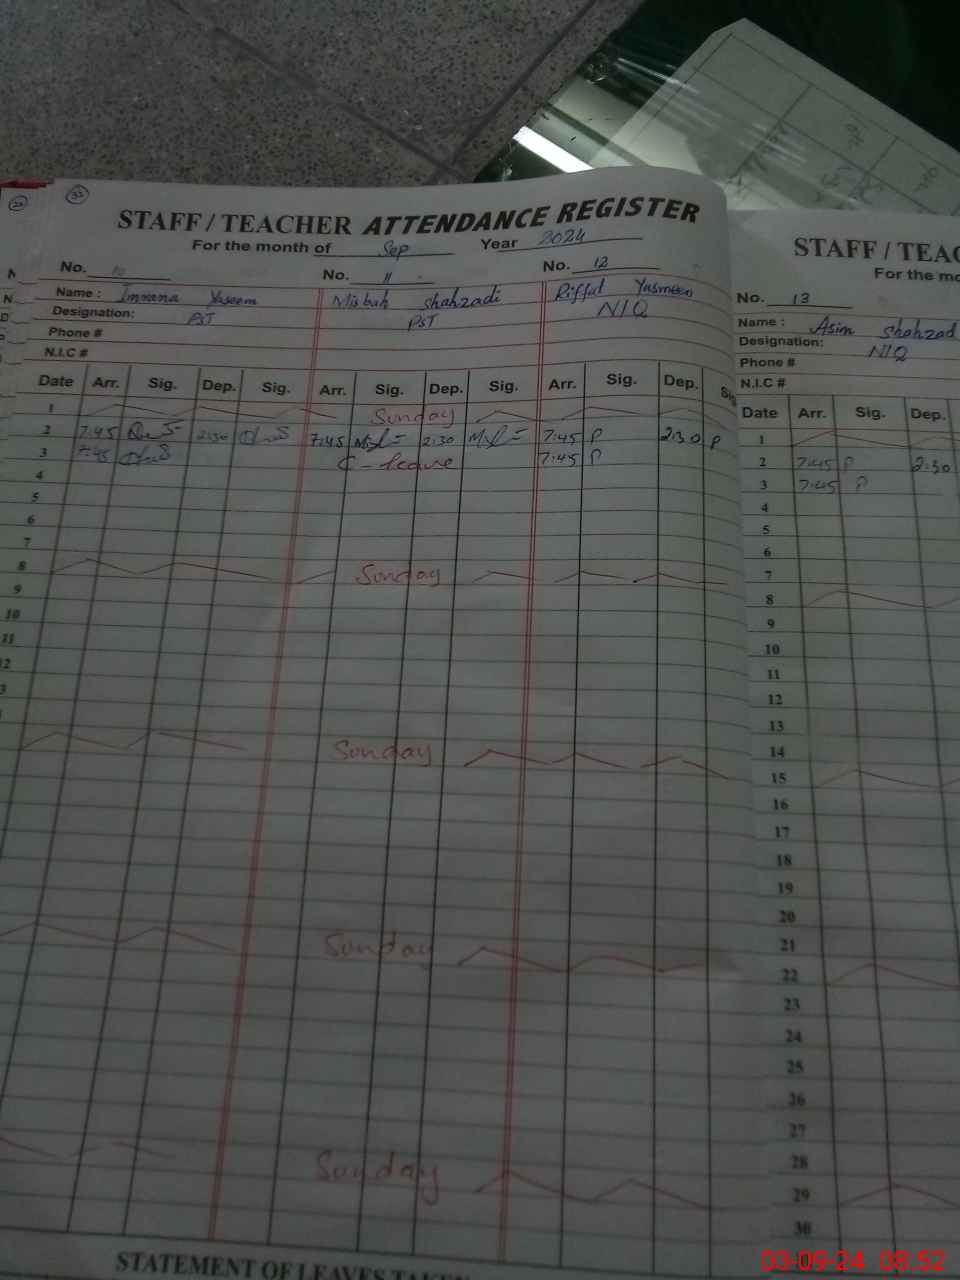 32
STAFF / TEACHER ATTENDANCE REGISTER
For the month of Sep Year 2024
No. 10 No. 11 No. 12
Name : Imrana Yaseem Misbah Shahzadi Riffat Yasmeen
Designation: PST PST N/Q
Phone #
N.I.C #
Date Arr. Sig. Dep. Sig. Arr. Sig. Dep. Sig. Arr. Sig. Dep. Sig
1 Sunday
2 7:45 2:30 7:45 2:30 7:45 P 2:30 P
3 7:45 C-leave 7:45 P
4
5
6
7
8 Sunday
9
10
11
12
Sunday
Sunday
Sunday
STATEMENT OF LEAVES TAKEN
STAFF / TEAC
For the mo
No. 13
Name : Asim Shahzad
Designation: N/Q
Phone #
N.I.C #
Date Arr. Sig. Dep.
1
2 7:45 P 2:30
3 7:45 P
4
5
6
7
8
9
10
11
12
13
14
15
16
17
18
19
20
21
22
23
24
25
26
27
28
29
30
03-09-24 08:52